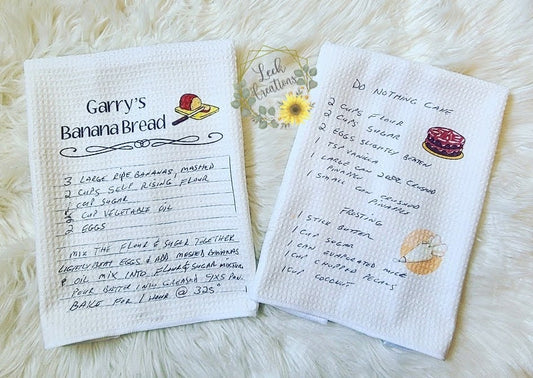 Garry's
Banana Bread
3 LARGE RIPE BANANAS, MASHED
2 CUPS SELF RISING FLOUR
1 CUP SUGAR
CUP VEGETABLE OIL
2 EGGS
MIX THE FLOUR & SUGAR TOGETHER
LIGHTLY BEAT EGGS & ADD MASHED BANANAS
& OIL MIX INTO FLOUR & SUGAR MIXTURE
POUR BATTER INTO GREASED 9X5 PAN.
BAKE FOR 1 HOUR @ 325°
Leek
Creations
DO NOTHING CAKE
2 CUPS FLOUR
2 CUPS SUGAR
2 EGGS SLIGHTLY BEATEN
1 TSP VANILLA
1 LARGE CAN CRUSHED
PINEAPPLE
1 SMALL CAN CRUSHED
PINEAPPLE
FROSTING
1 STICK BUTTER
1 CUP SUGAR
1 CAN EVAPORATED MILK
1 CUP CHOPPED PECANS
1 CUP COCONUT